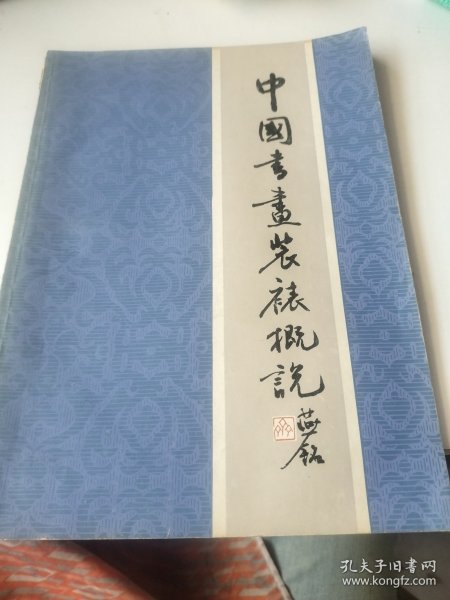 中國书畫装裱概説
燕铭
孔夫子旧书网
www.kongfz.com